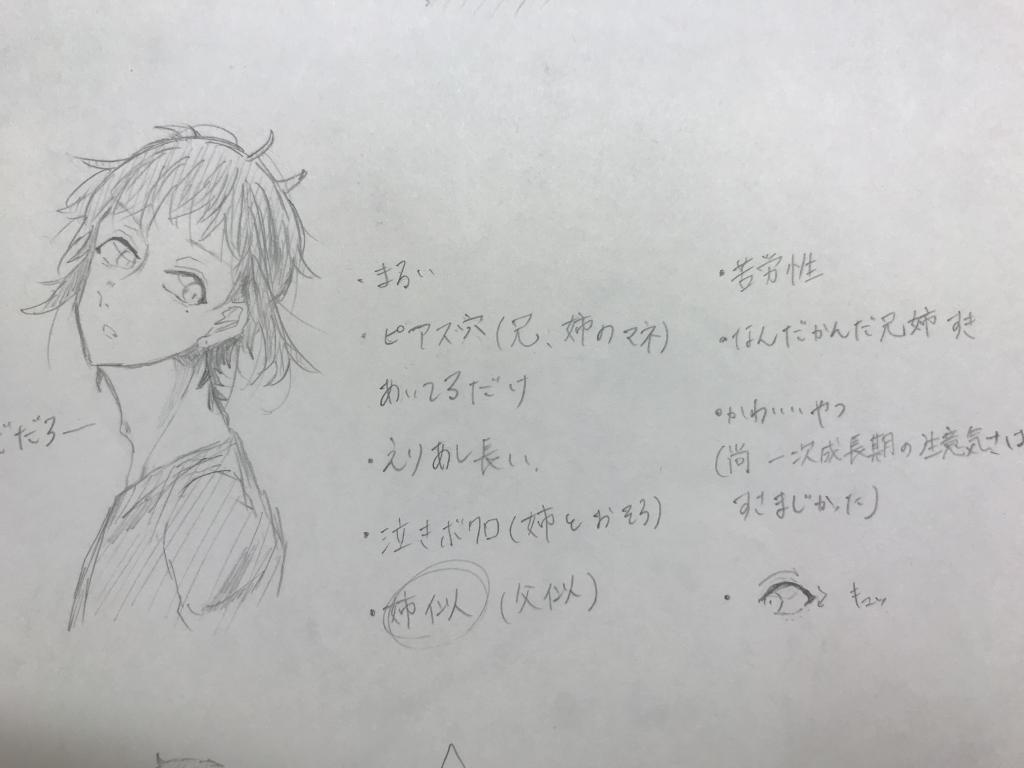 どだろー
・まるい
・ピアス穴(兄、姉のマネ)
あいてるだけ
・えりあし長い、
・泣きボクロ(姉とおそろ)
・姉似(父似)
・苦労性
・なんだかんだ兄姉すき
・かわいいやつ
(尚 一次成長期の生意気さは
すさまじかった)
・キュッ